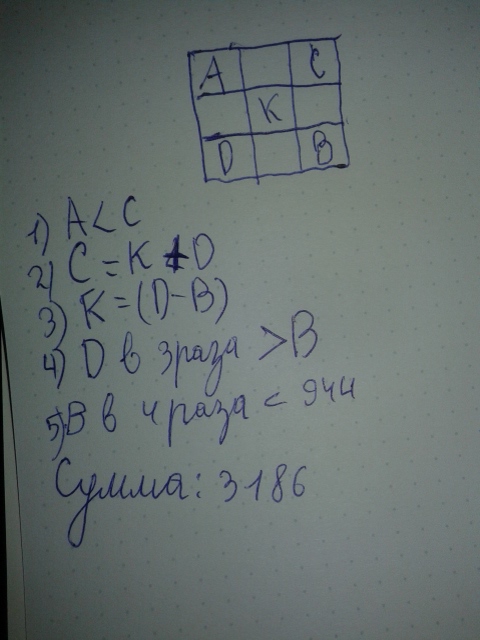 A C
K
D B
1) A < C
2) C = K + D
3) K = (D - B)
4) D в 3 раза > B
5) B в 4 раза < 944
Сумма: 3186